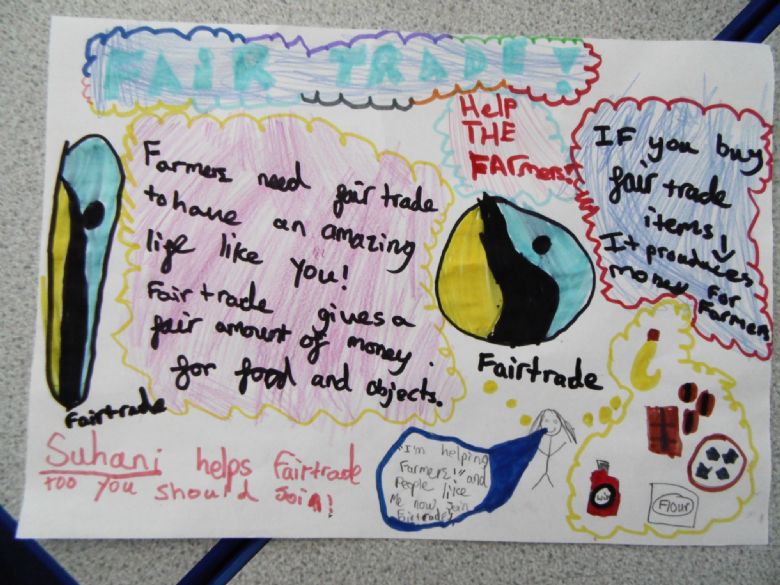 FAIR TRADE!
HELP
THE
FARmers!
Farmers need fair trade
to have an amazing
life like you!
Fair trade gives a
fair amount of money
for food and objects.
IF you buy
fair trade
items!
It produces
money for
Farmers
Fairtrade
Fairtrade
Suhani helps Fairtrade
too you should join!
"I'm helping
Farmers!" and
People like
Me now join
Fairtrade
Flour